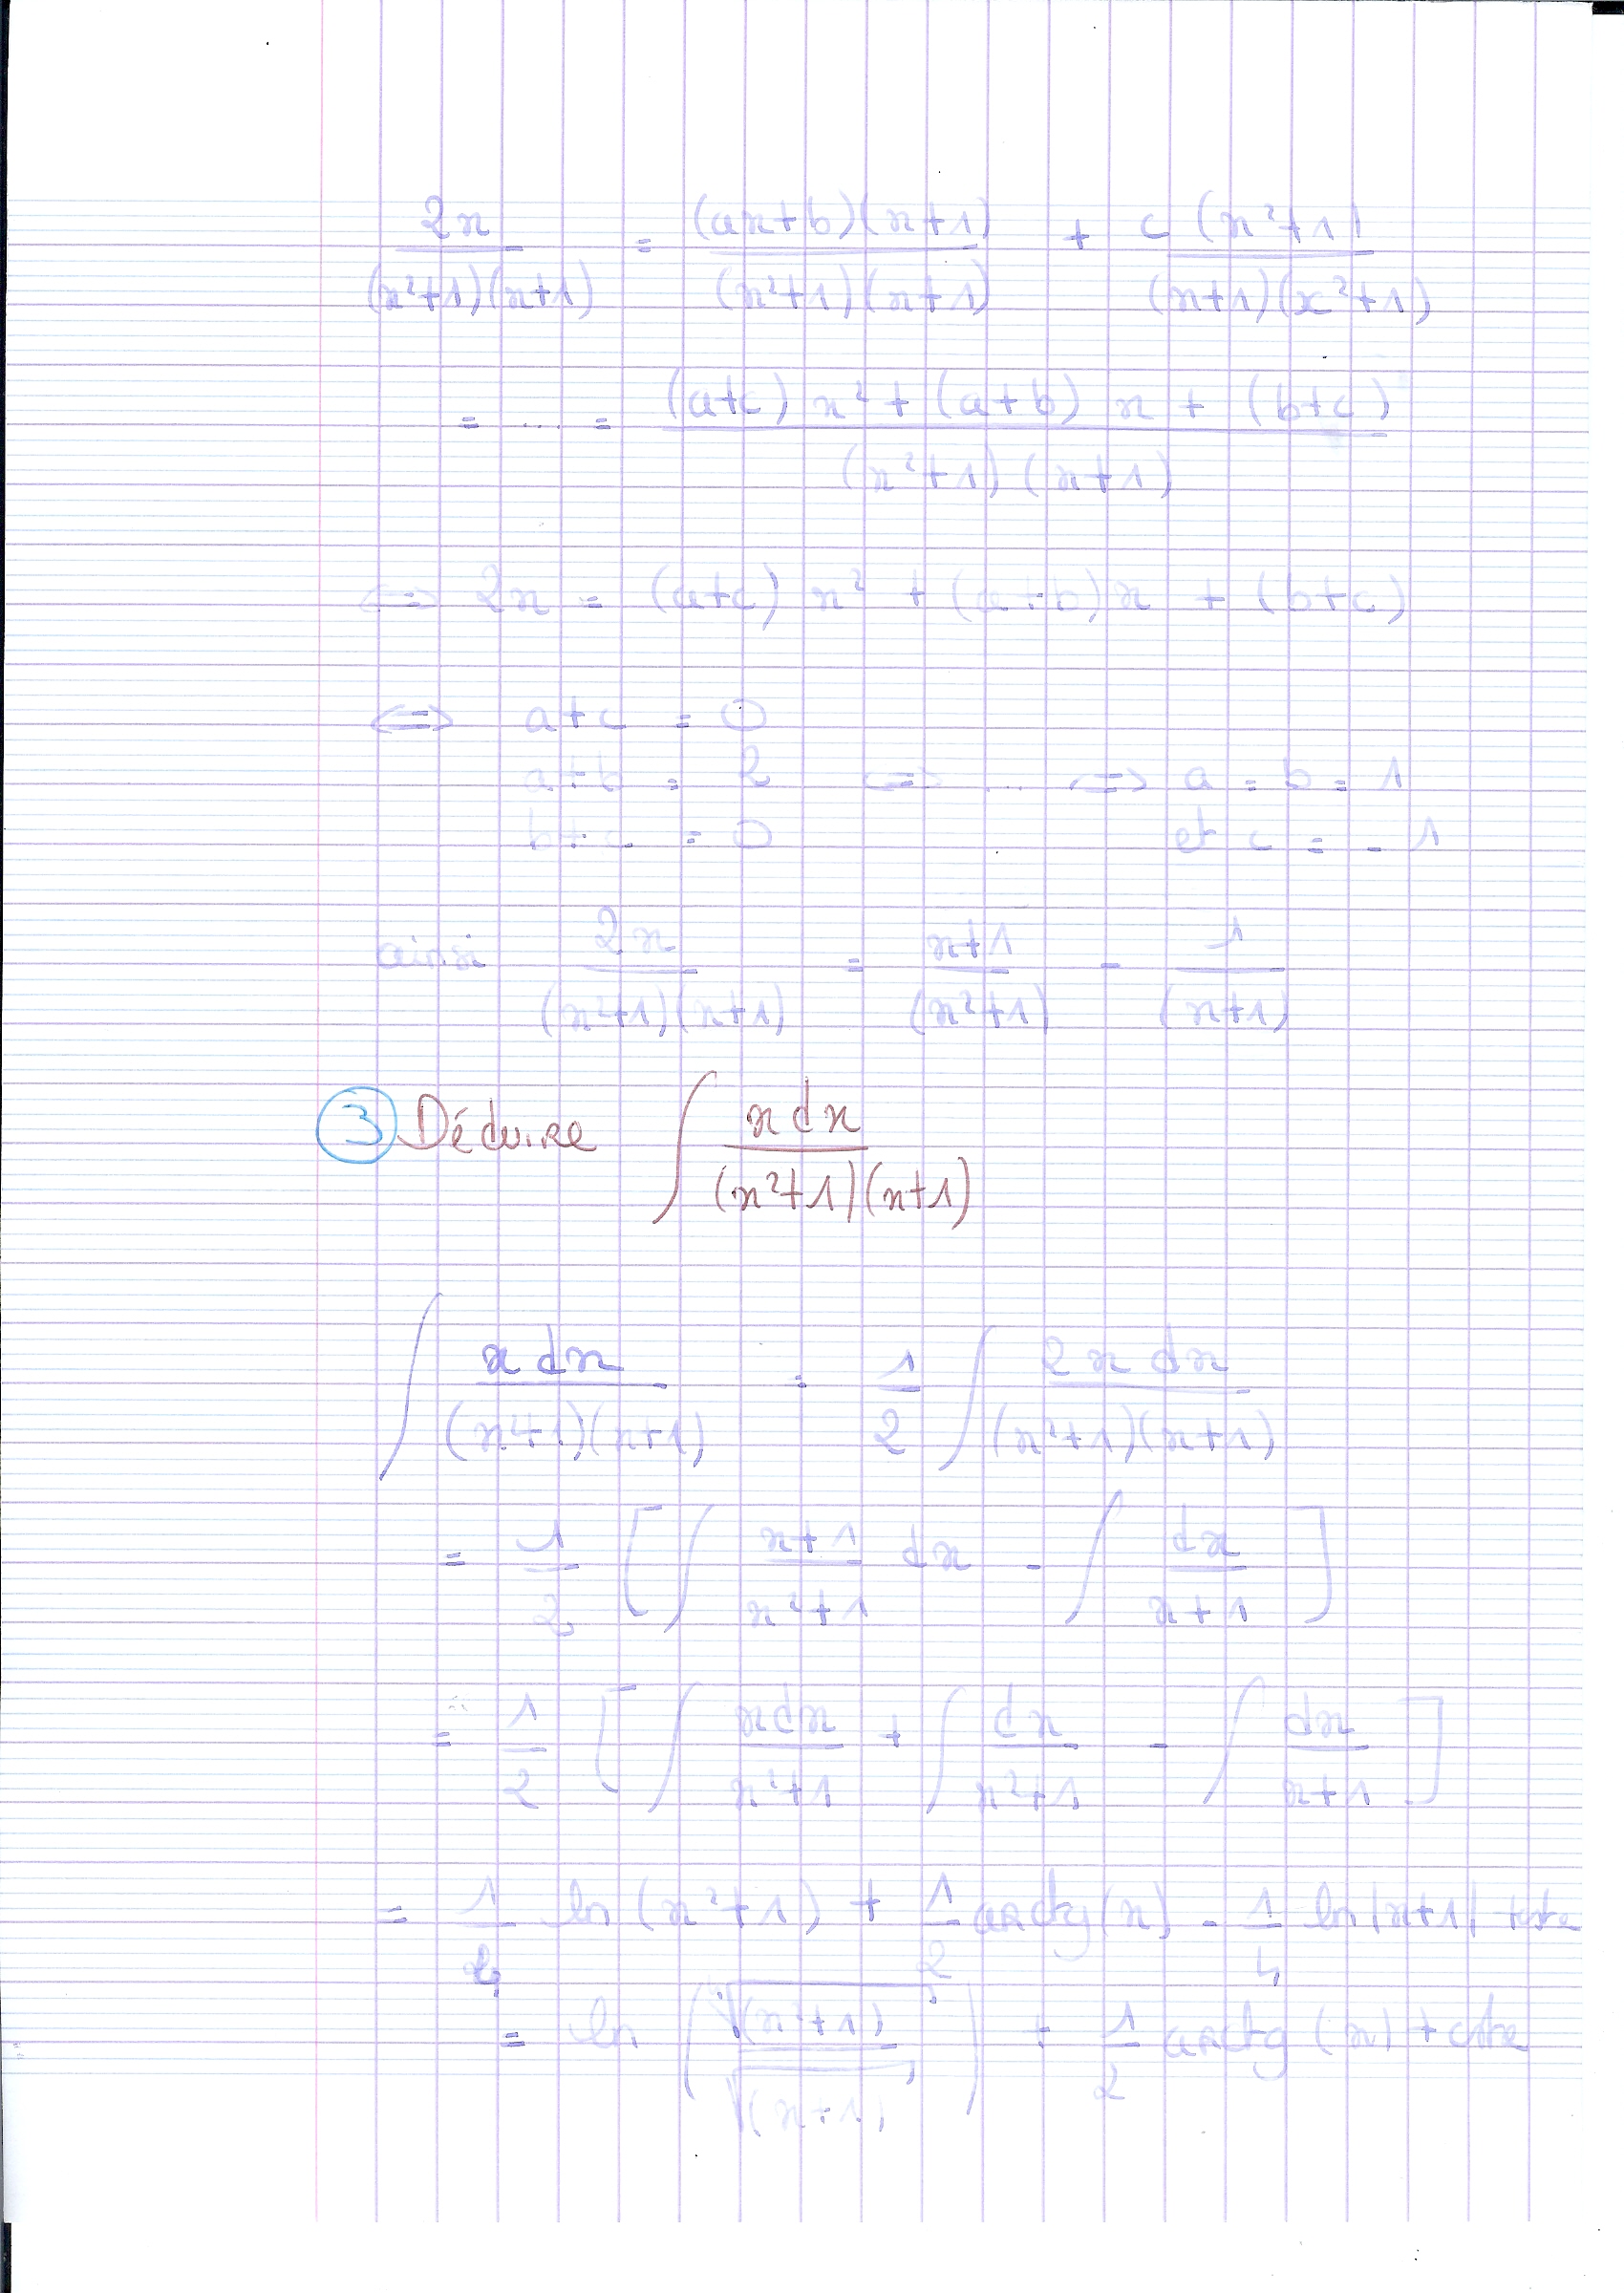 2x/((x²+1)(x+1)) = (ax+b)(x+1)/((x²+1)(x+1)) + c(x²+1)/((x+1)(x²+1))
= ... = ((a+c)x² + (a+b)x + (b+c))/((x²+1)(x+1))
⇔ 2x = (a+c)x² + (a+b)x + (b+c)
⇔ a+c = 0
a+b = 2 ⇔ ... ⇔ a = b = 1
b+c = 0 et c = -1
ainsi 2x/((x²+1)(x+1)) = (x+1)/(x²+1) - 1/(x+1)
③ Déduire ∫ x dx/((x²+1)(x+1))
∫ x dx/((x²+1)(x+1)) = 1/2 ∫ 2x dx/((x²+1)(x+1))
= 1/2 [∫ (x+1)/(x²+1) dx - ∫ dx/(x+1)]
= 1/2 [∫ xdx/(x²+1) + ∫ dx/(x²+1) - ∫ dx/(x+1)]
= 1/4 ln(x²+1) + 1/2 arctg(x) - 1/4 ln|x+1| + cste
= ln(√(x²+1)/√(x+1)) + 1/2 arctg(x) + cste